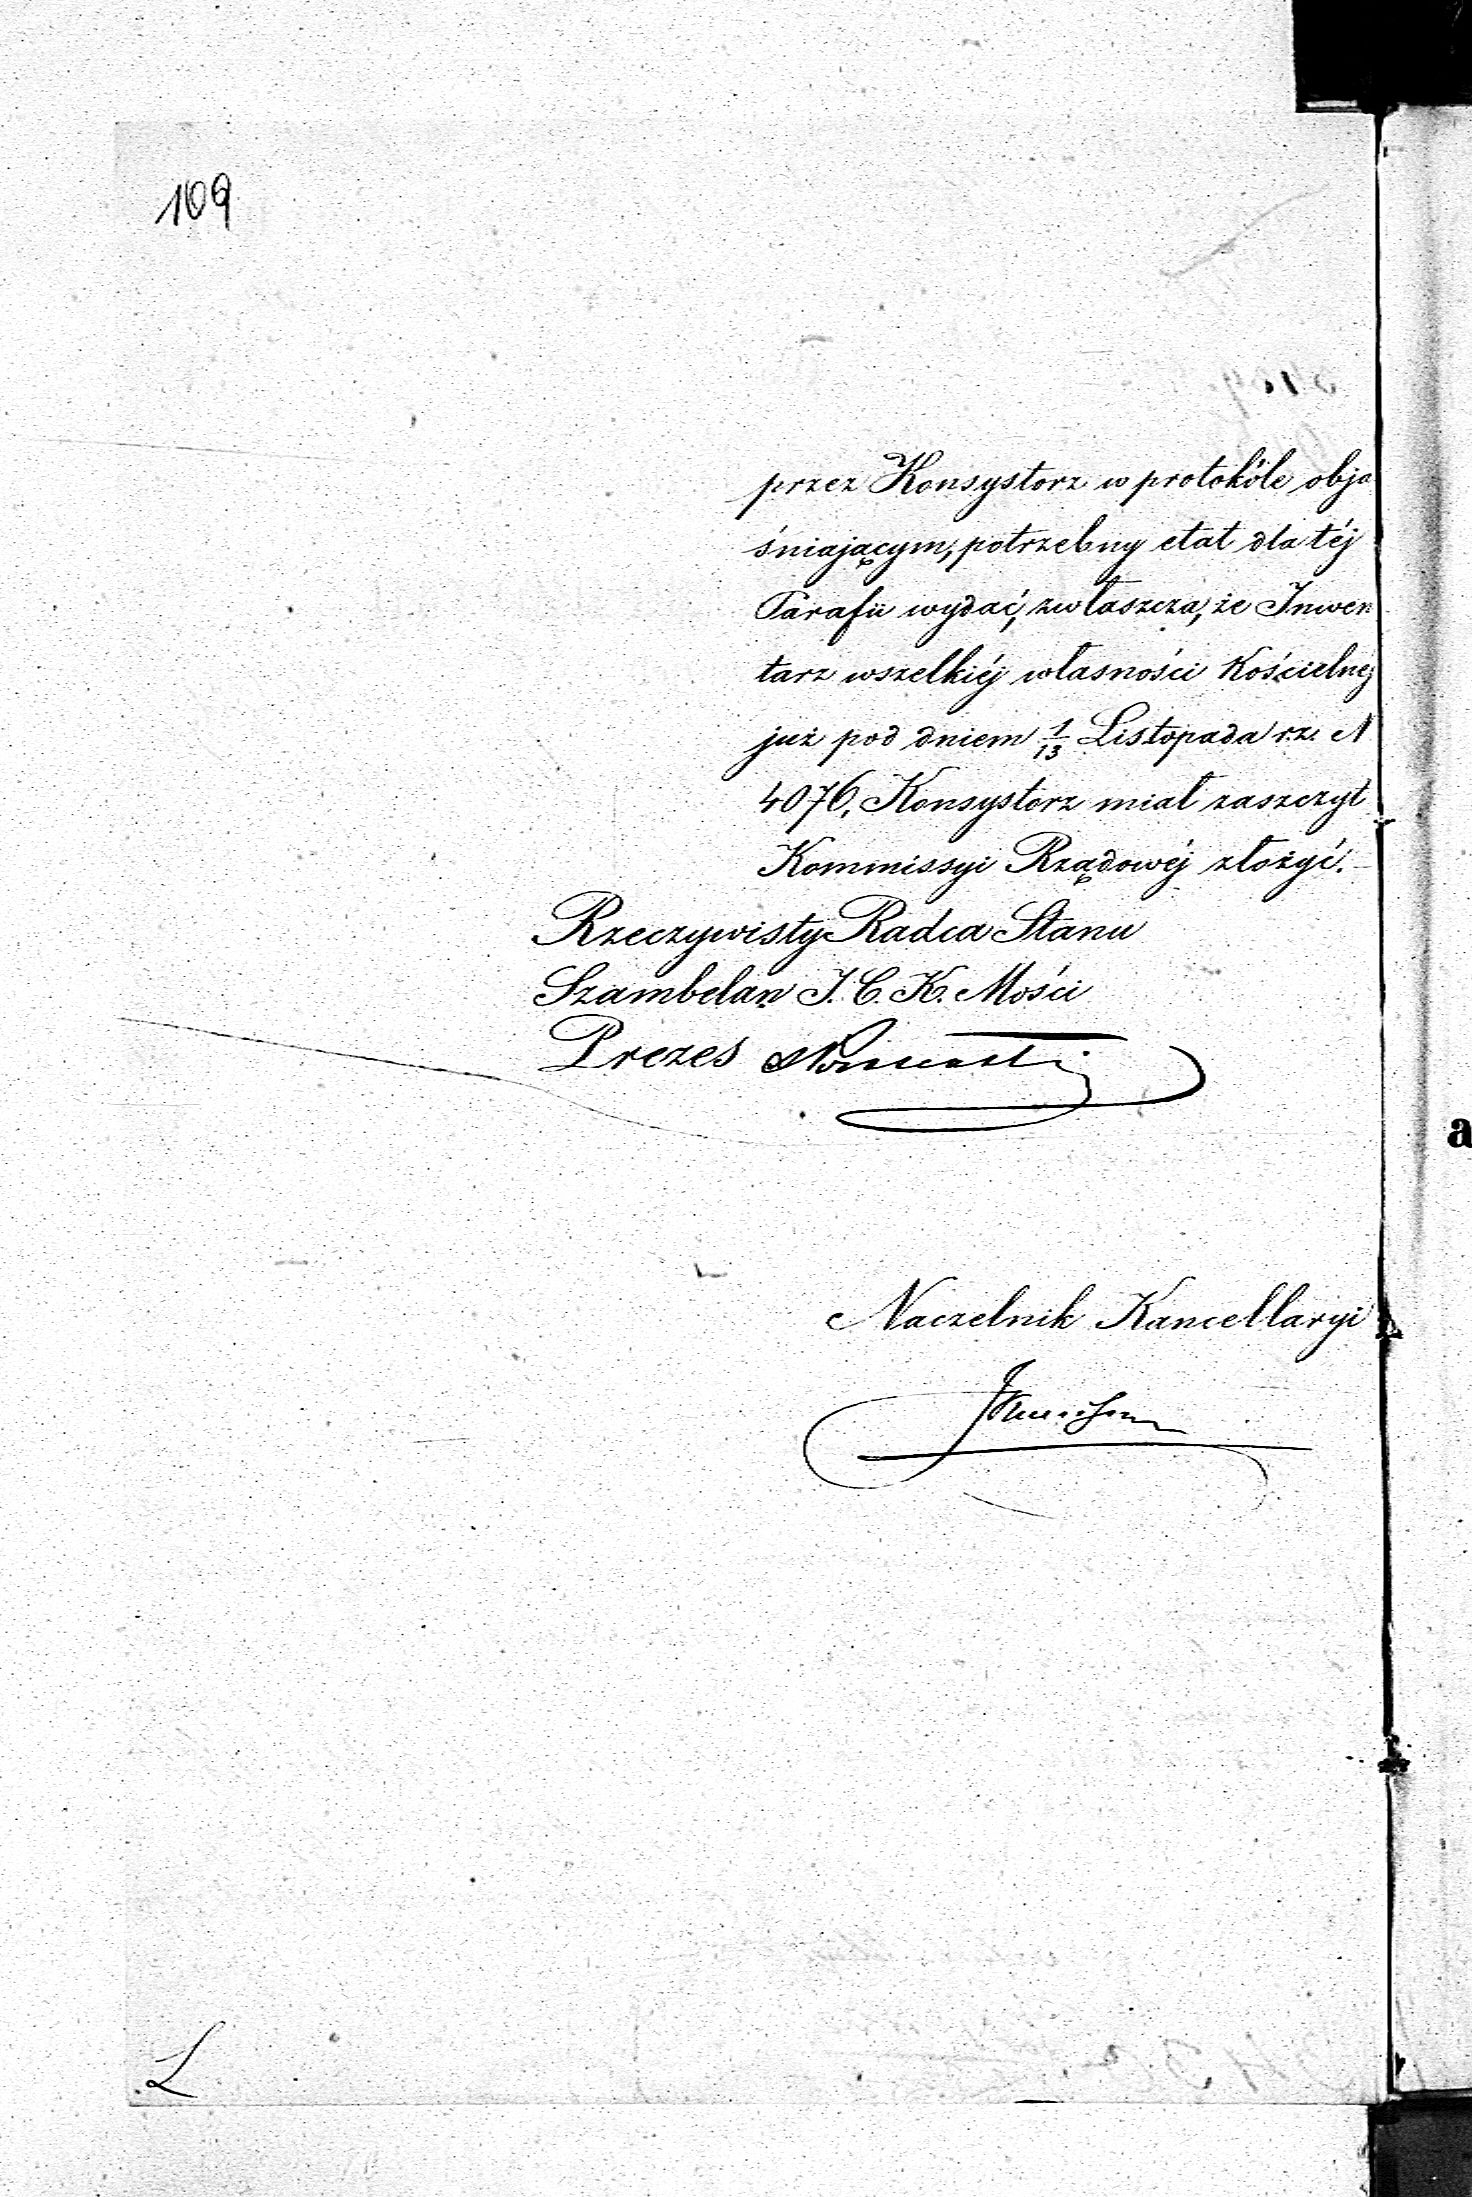 109
przez Konsystorz w protokóle obja
śniającym, potrzebny etat dla téj
Parafii wydać, zwłaszcza, że Inwen
tarz wszelkiéj własności Kościelnej
już pod dniem 1/13 Listopada r.z. N
4076, Konsystorz miał zaszczyt
Kommissyi Rządowéj złożyć.
Rzeczywisty Radca Stanu
Szambelan J. C. K. Mości
Prezes
Naczelnik Kancellaryi
L
a